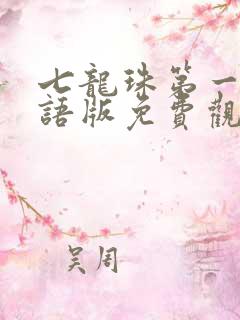 七龍珠第一
語版免費觀
吴周